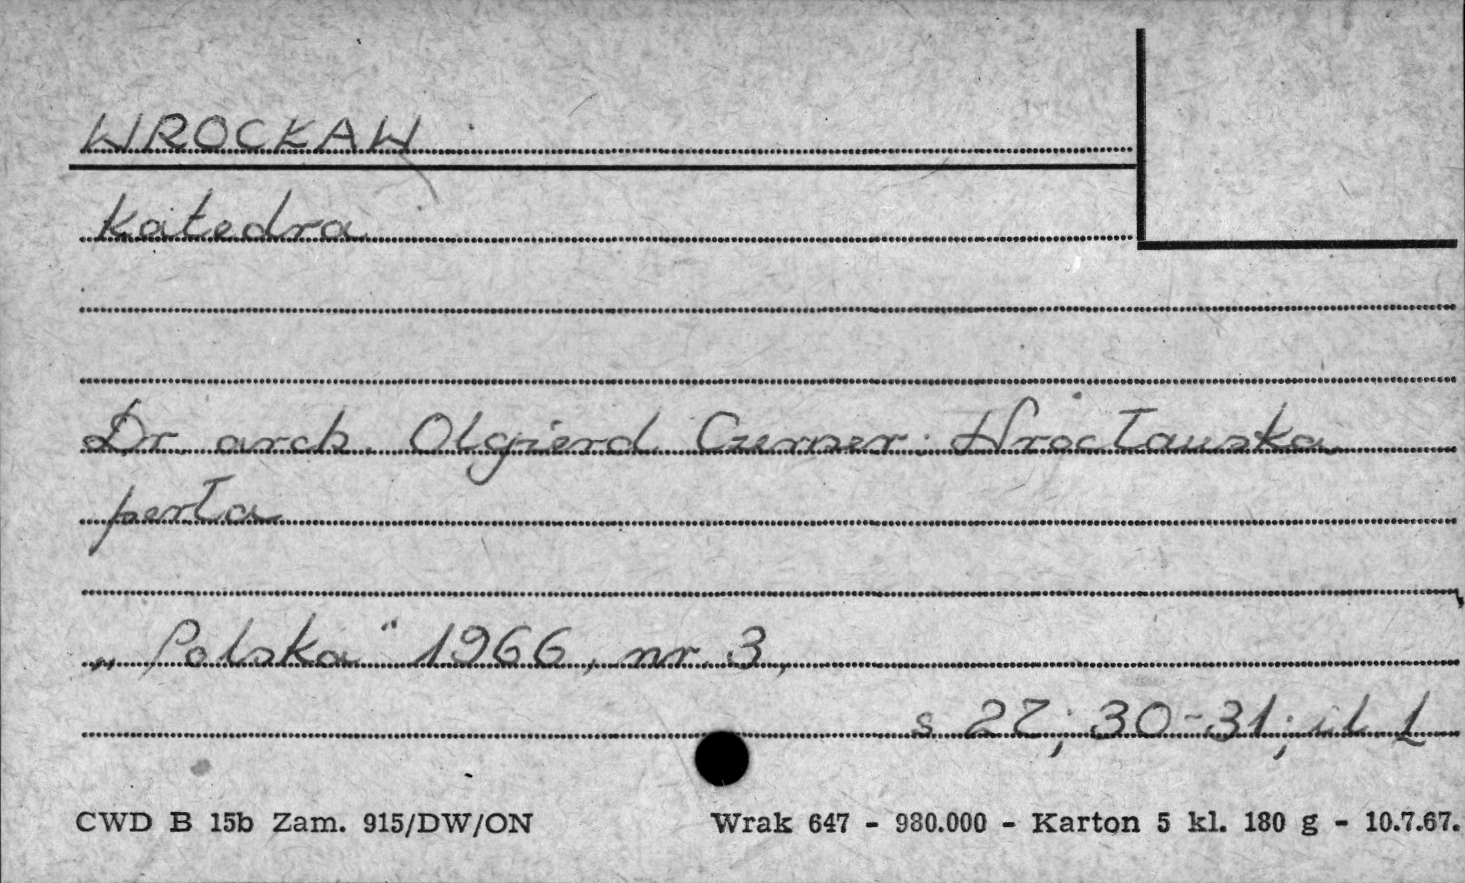 WROCŁAW
Katedra
Dr. arch. Olgierd Czerner: Wrocławska
perła
„Polska" 1966, nr. 3,
s 27; 30-31; il 1
CWD B 15b Zam. 915/DW/ON Wrak 647 - 980.000 - Karton 5 kl. 180 g - 10.7.67.